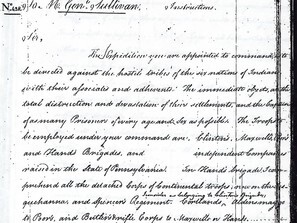 To M. Genl. Sullivan Instructions.
Sir,
The Expedition you are appointed to command is to
be directed against the hostile tribes of the six nations of Indians
with their associates and adherents. The immediate objects are the
total distruction and devastation of their settlements, and the capture
of as many Prisoners of every age and sex as possible. The Troops to
be employed under your command are Clinton's, Maxwell's, Poor's
and Hand's Brigades, and independent Companies
raised in the State of Pennsylvania. In Hand's brigade I com-
prehend all the detached Corps of Continental troops, now on the Sus-
quehanna, and Spencers Regiment. Cortlands,
to Poors, and Butler's rifle Corps to Maxwells or Hands.